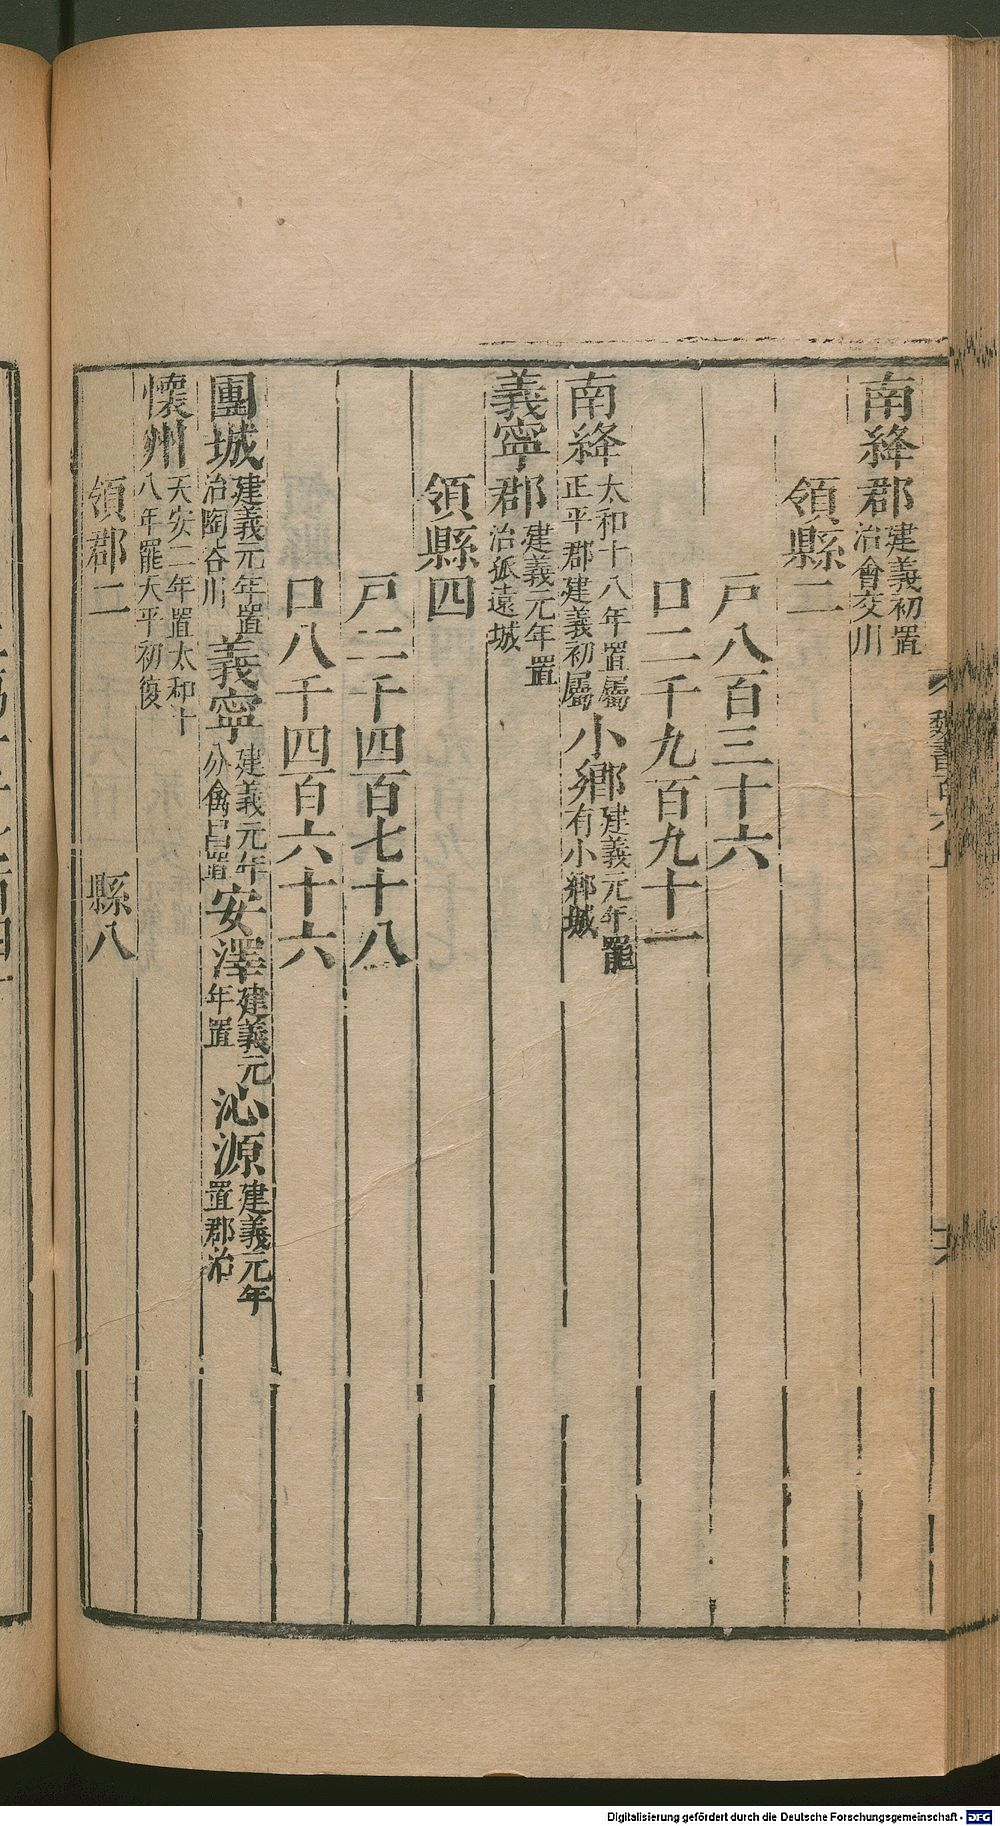 南絳郡建義初置治會交川
領縣二
戸八百三十六
口二千九百九十一
南絳太和十八年置屬正平郡建義初屬小鄉建義元年罷有小鄉城
義寧郡建義元年置治狐遠城
領縣四
戸二千四百七十八
口八千四百六十六
團城建義元年置治陶谷川義寧建義元年分禽昌置安澤建義元年置沁源建義元年置郡治
懷州天安二年置太和十八年罷天平初復
領郡二 縣八
Digitalisierung gefördert durch die Deutsche Forschungsgemeinschaft - DFG